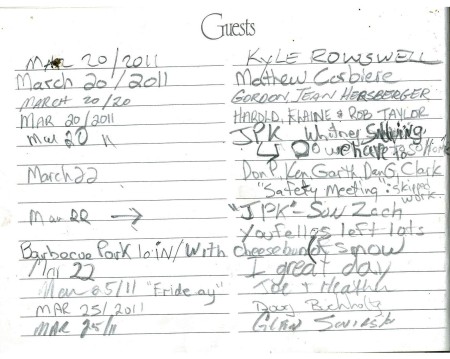 Guests
MAR 20/2011 KYLE ROWSWELL
March 20/2011 Matthew Corbiere
MARCH 20/20 GORDON JEAN HERSBERGER
MAR 20/2011 HAROLD, ELAINE & ROB TAYLOR
Mar 20 11 JPK Whitney
Do we have to
March 22 Don P, Ken, Garth, Dan G, Clark
"Safety Meeting: skipped work."
Mar 22 → "JPK" - Son Zach
You fellas left lots
Barbecue Pork loin/With cheeseburger snow
Mar 22 1 great day
Mar 25/11 "Friday" Joe + Heather
MAR 25/2011 Doug
MAR 25/11 Glen